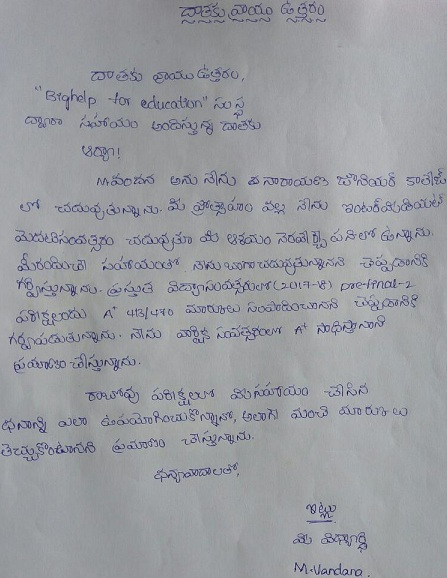 దాతకు వ్రాయు ఉత్తరం
దాతకు వ్రాయు ఉత్తరం,
"Bighelp for education" సంస్థ
ద్వారా సహాయం అందిస్తున్న దాతకు
ఆర్యా!
M.వందన అను నేను నారాయణ జూనియర్ కాలేజ్
లో చదువుతున్నాను. మీ ప్రోత్సాహం వల్ల నేను ఇంటర్మీడియట్
మొదటిసంవత్సరం చదువుతూ మీ ఆశయం నెరవేర్చే పనిలో ఉన్నాను.
మీరందించే సహాయంతో నేను బాగా చదువుతున్నానని చెప్పడానికి
గర్విస్తున్నాను. ప్రస్తుత విద్యాసంవత్సరంలో (2017-18) Pre-final-2
పరీక్షలందు A+ 413/470 మార్కులు సంపాదించానని చెప్పడానికి
గర్వపడుతున్నాను. నేను వార్షిక సంవత్సరంలో A+ సాధిస్తానని
ప్రమాణం చేస్తున్నాను.
రాబోవు పరీక్షలలో మీ సహాయం చేసిన
ధనాన్ని ఎలా ఉపయోగించుకొన్నానో, అలాగే మంచి మార్కులు
తెచ్చుకొంటానని ప్రమాణం చేస్తున్నాను.
ధన్యవాదాలతో,
ఇట్లు
మీ విద్యార్థి
M.Vandana.